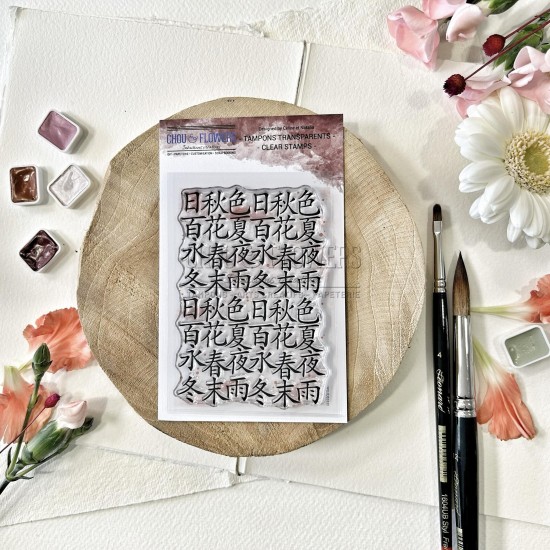 CHOU & FLOWERS
Designed by Coline in Alsace
- TAMPONS TRANSPARENTS -
- CLEAR STAMPS
日秋色日秋色
百花夏百花夏
水春夜水春夜
冬末雨冬末雨
日秋色日秋色
百花夏百花夏
水春夜水春夜
冬末雨冬末雨